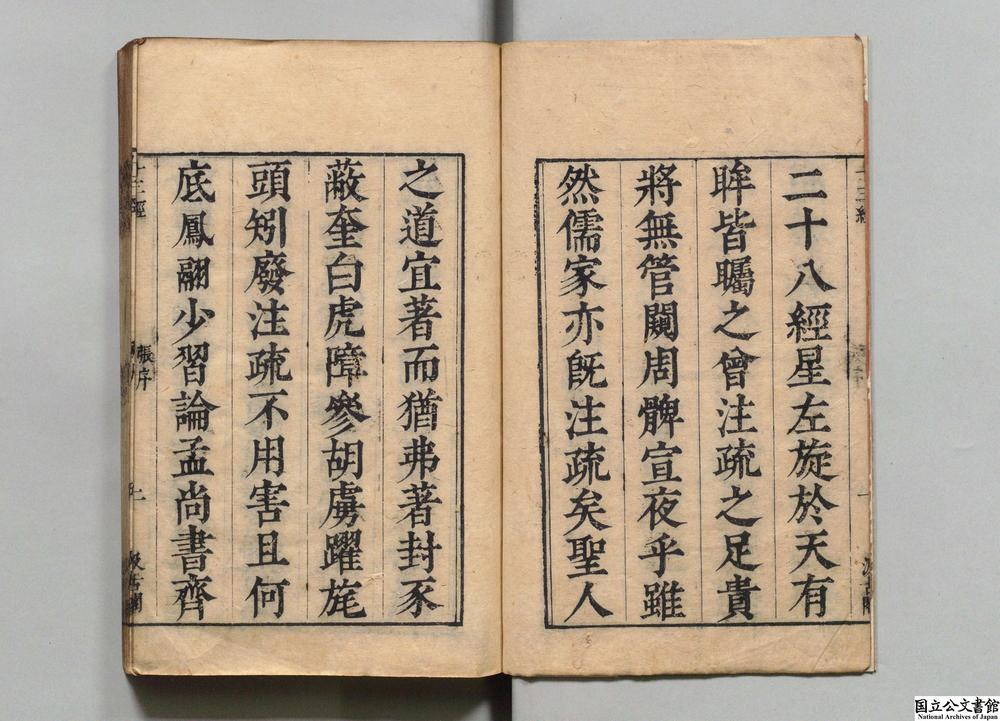 二十八經星左旋於天有
眸皆矚之曾注疏之足貴
將無管闚周髀宣夜乎雖
然儒家亦既注疏矣聖人
之道宜著而猶弗著封豕
蔽奎白虎障參胡虜躍旄
頭矧廢注疏不用害且何
底鳳翮少習論孟尚書齊
十三經
張序
二
汲古閣
国立公文書館
National Archives of Japan